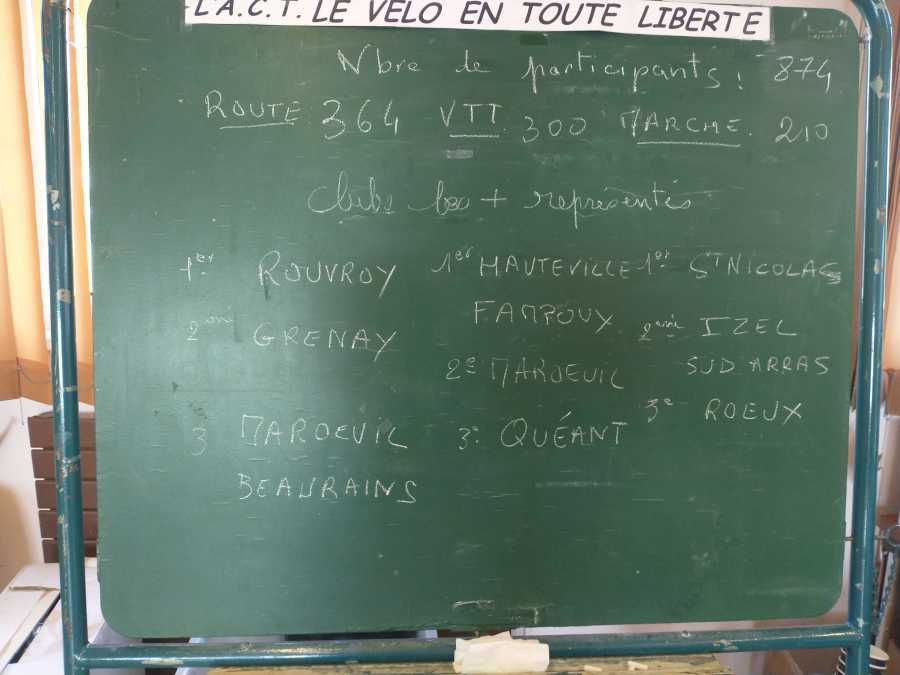 L'A.C.T. LE VELO EN TOUTE LIBERTE
Nbre de participants : 874
ROUTE 364 VTT 300 MARCHE 210
Clubs les + représentés
1er ROUVROY 1er HAUTEVILLE 1er ST NICOLAS
FAMPOUX
2ème GRENAY 2ème IZEL
2e MAROEUIL SUD ARRAS
3 MAROEUIL 3e QUÉANT 3e ROEUX
BEAURAINS